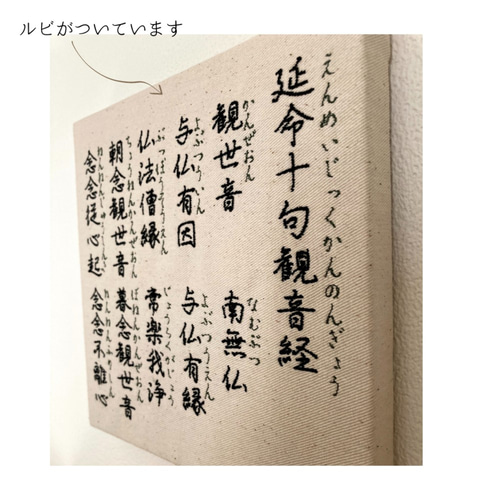 ルビがついています
えんめいじっくかんのんぎょう
延命十句観音経
かんぜおん なむぶつ
観世音 南無仏
よぶつういん よぶつうえん
与仏有因 与仏有縁
ぶっぽうそうえん じょうらくがじょう
仏法僧縁 常楽我浄
ちょうねんかんぜおん ぼねんかんぜおん
朝念観世音 暮念観世音
念念従心起 念念不離心